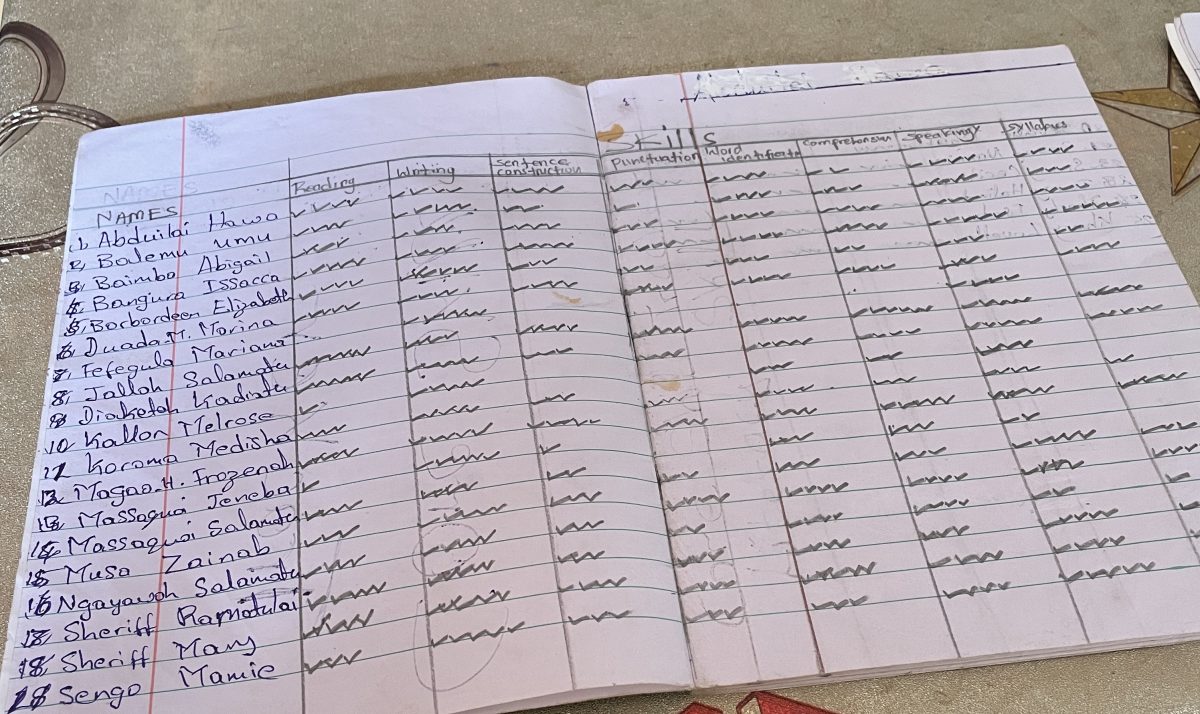 Skills
NAMES Reading Writing sentence construction Punctuation Word identificati comprehension speaking syllabus
1, Abduilai Hawa
2, Balemu umu
3, Baimba Abigail
4, Bangura Issacca
5, Borbordeen Elizabeth
6, Duada.M. Marina
7, Fefegula Mariama
8, Jalloh Salamatu
9 Diaketoh Kadiatu
10 Kallon Melrose
11 Koroma Medisha
12 Magao.H. Frozenah
13, Massaquoi Jeneba
14 Massaquoi Salamatu
15 Musa Zainab
16 Ngayawoh Salamatu
17, Sheriff Ramatulai
18, Sheriff Mary
18 Sengo Mamie